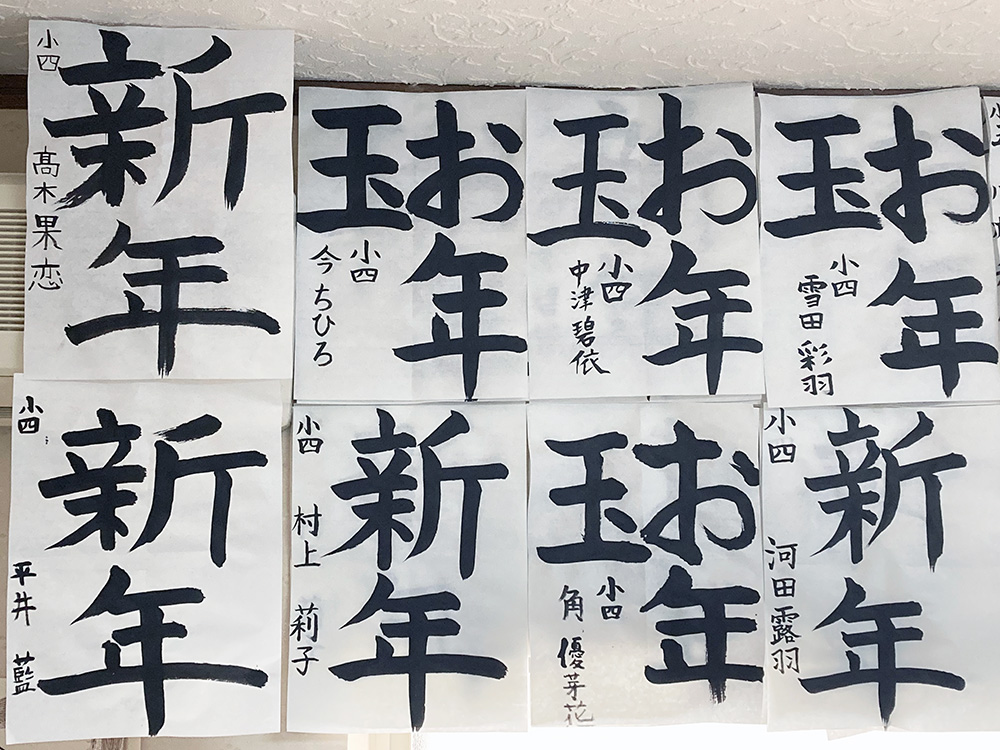 新年
小四
髙木果恋
お年
玉
小四
今ちひろ
お年
玉
小四
中津碧依
お年
玉
小四
雪田彩羽
新年
小四
平井 藍
新年
小四
村上 莉子
お年
玉
小四
角 優芽花
新年
小四
河田露羽